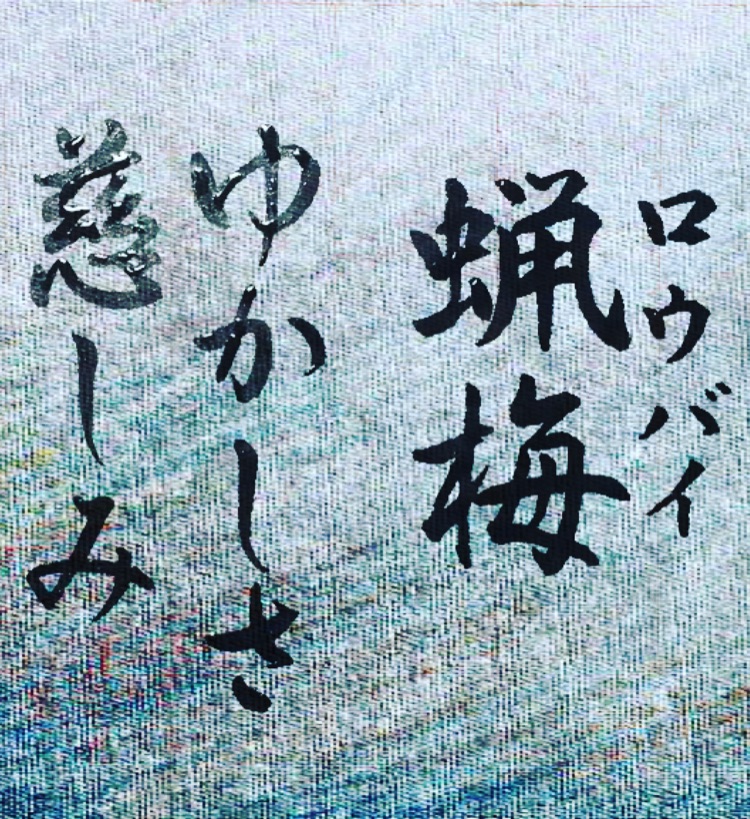 ロウバイ
蝋梅
ゆかしさ
慈しみ